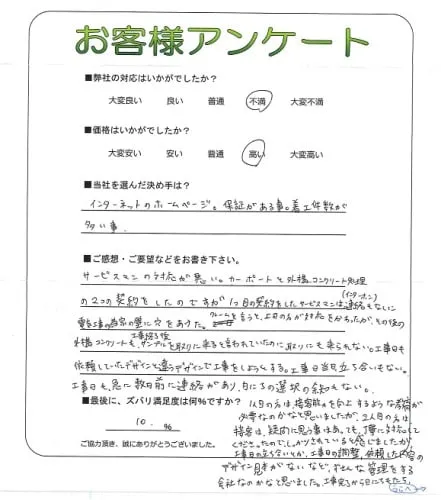 お客様アンケート
■弊社の対応はいかがでしたか?
大変良い 良い 普通 不満 大変不満
■価格はいかがでしたか?
大変安い 安い 普通 高い 大変高い
■当社を選んだ決め手は?
インターネットのホームページ。保証がある事。着工件数が
多い事。
■ご感想・ご要望などをお書き下さい。
サービスマンの対応が悪い。カーポートと外構コンクリート処理
の2つの契約をしたのですが1つ目の契約をしたサービスマンは連絡もなしに
(インターホン)
電気工事の為家の壁に穴をあけた。クレームを言うと、上司の方が対応をかわったが、その後の
工事終了後
外構コンクリートも、サンプルを取りに来ると言われていたのに取りにも来られない。工事日も
依頼していたデザインと違うデザインで工事をしようとする。工事日当日立ち会いもない。
工事日も、急に数日前に連絡があり、日にちの選択の余地もない。
■最後に、ズバリ満足度は何%ですか?
10. %
ご協力頂き、誠にありがとうございました。
1人目の方は、接客能力を向上するような教育が
必要なのかなと思いましたが、2人目の方は
接客は、疑問に思う事はあっても、丁寧に対応して
くださったので、しっかりされていると感じましたが
工事日の立ち合いとか、工事日の調整、依頼した内容の
デザイン見本がないなど、ずさんな管理をする
会社なのかなと思いました。工事完了から日にちもたち、